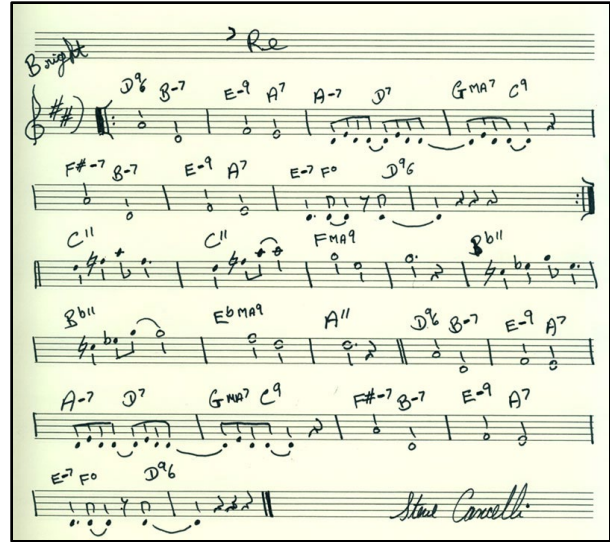 ’Re
Bright
D9/6 B-7 E-9 A7 A-7 D7 GMA7 C9
F#-7 B-7 E-9 A7 E-7 F° D9/6
C11 C11 FMA9 Bb11
Bb11 EbMA9 A11 D9/6 B-7 E-9 A7
A-7 D7 GMA7 C9 F#-7 B-7 E-9 A7
E-7 F° D9/6
Steve Cancelli